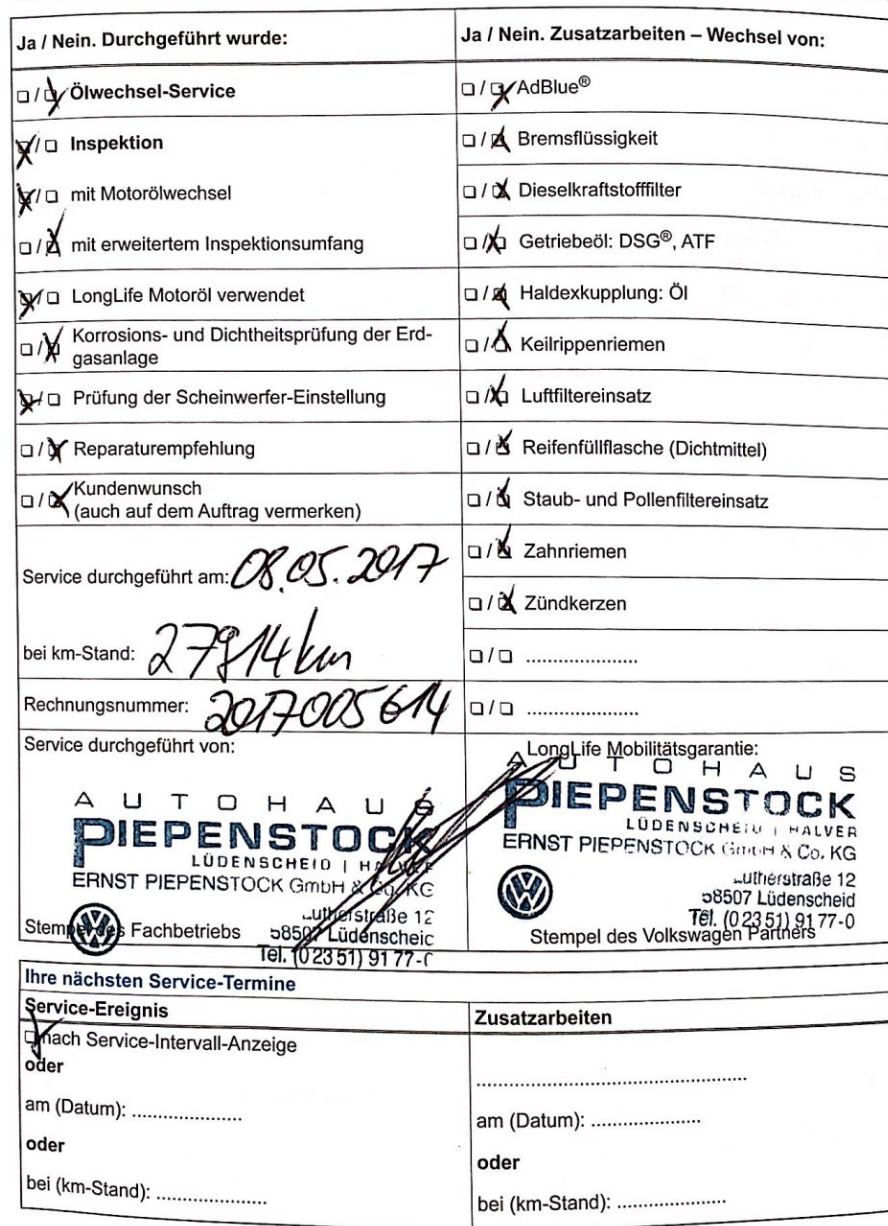 Ja / Nein. Durchgeführt wurde:
☐ / ☒ Ölwechsel-Service
☒ / ☐ Inspektion
☒ / ☐ mit Motorölwechsel
☐ / ☒ mit erweitertem Inspektionsumfang
☒ / ☐ LongLife Motoröl verwendet
☐ / ☒ Korrosions- und Dichtheitsprüfung der Erd-
gasanlage
☒ / ☐ Prüfung der Scheinwerfer-Einstellung
☐ / ☒ Reparaturempfehlung
☐ / ☒ Kundenwunsch
(auch auf dem Auftrag vermerken)
Service durchgeführt am: 08.05.2017
bei km-Stand: 27914 km
Rechnungsnummer: 2017005614
Service durchgeführt von:
AUTOHAUS
PIEPENSTOCK
LÜDENSCHEID | HALVER
ERNST PIEPENSTOCK GmbH & Co. KG
Lutherstraße 12
58507 Lüdenscheid
Tel. (0 23 51) 91 77-0
Stempel des Fachbetriebs
Ja / Nein. Zusatzarbeiten – Wechsel von:
☐ / ☒ AdBlue®
☐ / ☒ Bremsflüssigkeit
☐ / ☒ Dieselkraftstofffilter
☐ / ☒ Getriebeöl: DSG®, ATF
☐ / ☒ Haldexkupplung: Öl
☐ / ☒ Keilrippenriemen
☐ / ☒ Luftfiltereinsatz
☐ / ☒ Reifenfüllflasche (Dichtmittel)
☐ / ☒ Staub- und Pollenfiltereinsatz
☐ / ☒ Zahnriemen
☐ / ☒ Zündkerzen
☐ / ☐ .....................
☐ / ☐ .....................
LongLife Mobilitätsgarantie:
AUTOHAUS
PIEPENSTOCK
LÜDENSCHEID | HALVER
ERNST PIEPENSTOCK GmbH & Co. KG
Lutherstraße 12
58507 Lüdenscheid
Tel. (0 23 51) 91 77-0
Stempel des Volkswagen Partners
Ihre nächsten Service-Termine
Service-Ereignis
☒ nach Service-Intervall-Anzeige
oder
am (Datum): .....................
oder
bei (km-Stand): .....................
Zusatzarbeiten
....................................................
am (Datum): .....................
oder
bei (km-Stand): .....................